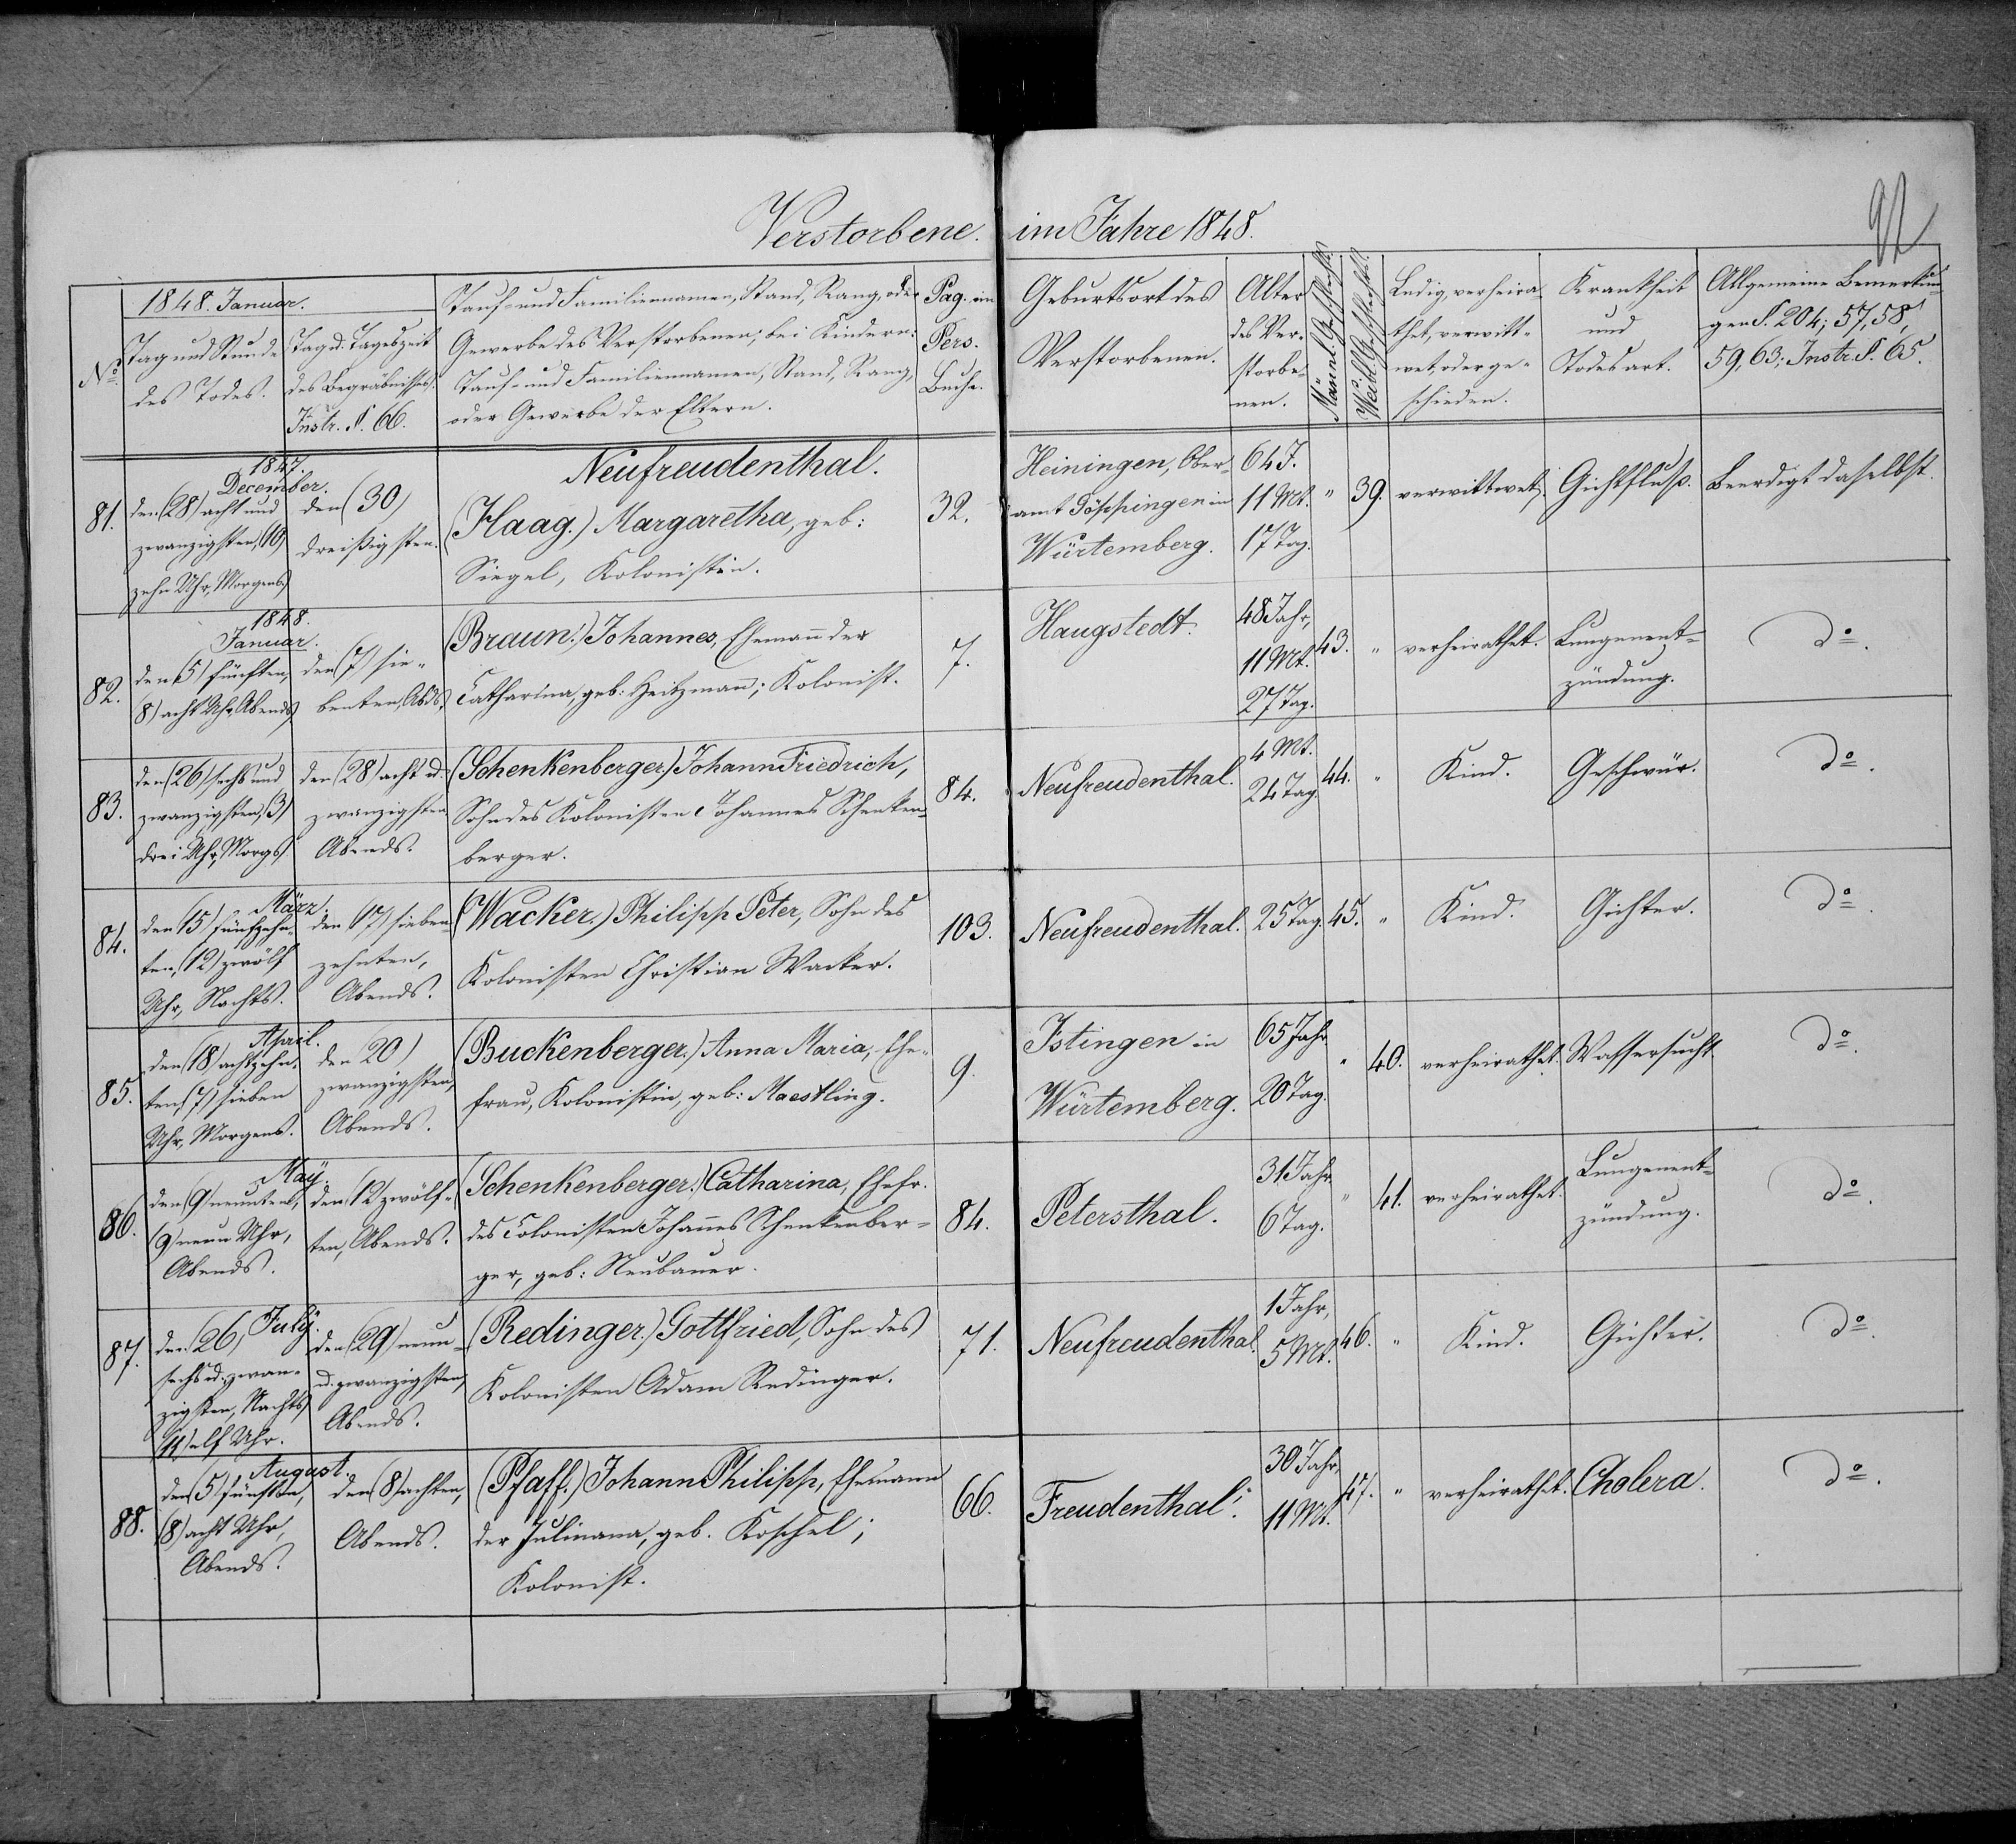 Verstorbene im Jahre 1848.
92
1848. Januar.
No
Tag und Stunde
des Todes.
Tag u. Tageszeit
des Begräbnisses.
Instr. §. 66.
Tauf- und Familiennamen, Stand, Rang, oder
Gewerbe des Verstorbenen; bei Kindern:
Tauf- und Familiennamen, Stand, Rang,
oder Gewerbe der Eltern.
Pag. im
Pers.
Buche.
Geburtsort des
Verstorbenen.
Alter
des Ver-
storbe-
nen.
Männl. Geschlechts.
Weibl. Geschlechts.
Ledig, verheira-
thet, verwitt-
wet, oder ge-
schieden.
Krankheit
und
Todesart.
Allgemeine Bemerkun-
gen §. 204; 57, 58,
59, 63; Instr. §. 65.
Neufreudenthal.
81.
1847.
December.
den (28) acht und
zwanzigsten, (10)
zehn Uhr, Morgens
den (30)
dreißigsten.
(Haag.) Margaretha, geb:
Siegel, Kolonistin.
32.
Heiningen, Ober-
amt Göppingen in
Würtemberg.
64 J.
11 Mt.
17 Tag.
"
39.
verwittwet.
Gichtfluß.
Beerdigt daselbst.
82.
1848.
Januar.
den (5) fünften,
(8) acht Uhr, Abends
den (7) sie-
benten, Abds.
(Braun.) Johannes, Ehemann der
Catharina, geb: Heitzmann; Kolonist.
7.
Haugstedt.
48 Jahr,
11 Mt.
27 Tag.
43.
"
verheirathet.
Lungenent-
zündung.
do.
83.
den (26) sechs und
zwanzigsten, (3)
drei Uhr, Morgs
den (28) acht u.
zwanzigsten
Abends.
(Schenkenberger.) Johann Friedrich,
Sohn des Kolonisten Johannes Schenken-
berger.
84.
Neufreudenthal.
4 Mt.
24 Tag.
44.
"
Kind.
Geschwür.
do.
84.
März.
den (15) fünfzehn-
ten, (12) zwölf
Uhr, Nachts.
den (17) sieben-
zehnten,
Abends.
(Wacker.) Philipp Peter, Sohn des
Kolonisten Christian Wacker.
103.
Neufreudenthal.
25 Tag.
45.
"
Kind.
Gichter.
do.
85.
April.
den (18) achtzehn-
ten, (7) sieben
Uhr, Morgens.
den 20)
zwanzigsten,
Abends.
(Buckenberger.) Anna Maria, Ehe-
frau, Kolonistin, geb: Maestling.
9.
Istingen in
Würtemberg.
65 Jahr
20 Tag.
"
40.
verheirathet.
Wassersucht.
do.
86.
May.
den (9) neunten,
(9) neun Uhr,
Abends.
den (12) zwölf-
ten, Abends.
(Schenkenberger.) Catharina, Ehefr.
des Colonisten Johannes Schenkenber-
ger, geb: Neubauer.
84.
Petersthal.
31 Jahr
6 Tag.
"
41.
verheirathet.
Lungenent-
zündung.
do.
87.
July.
den (26)
sechs u. zwan-
zigsten, Nachts
(11) elf Uhr.
den (29) neun-
u. zwanzigsten,
Abends.
(Redinger.) Gottfried, Sohn des
Kolonisten Adam Redinger.
71.
Neufreudenthal.
1 Jahr,
5 Mt.
46.
"
Kind.
Gichter.
do.
88.
August.
den (5) fünften,
(8) acht Uhr,
Abends.
den (8) achten,
Abends.
(Pfaff.) Johann Philipp, Ehemann
der Julinana, geb. Koschel;
Kolonist.
66.
Freudenthal.
30 Jahr,
11 Mt.
47.
"
verheirathet.
Cholera.
do.